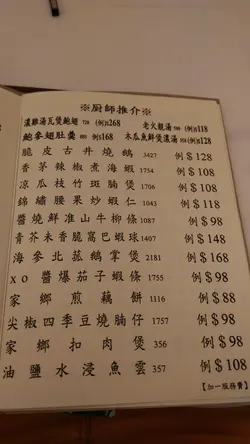 ※廚師推介※
濃雞湯瓦煲鮑翅 728 (例)$268
老火靚湯 (例)$118
鮑參翅肚羹 (例)$168
木瓜魚鮮煲濃湯 (例)$128
脆皮古井燒鵝 3427 例$128
香茅辣椒煮海蝦 1754 例$108
涼瓜枝竹斑腩煲 1706 例$108
錦繡腰果炒蝦仁 1043 例$118
醬燒鮮准山牛柳條 1087 例$98
青芥未香脆窩巴蝦球 1407 例$148
海參北菇鵝掌煲 2181 例$168
xo醬爆茄子蝦條 1755 例$98
家鄉煎藕餅 1116 例$88
尖椒四季豆燒腩仔 1757 例$98
家鄉扣肉煲 356 例$98
油鹽水浸魚雲 357 例$98
【加一服務費】